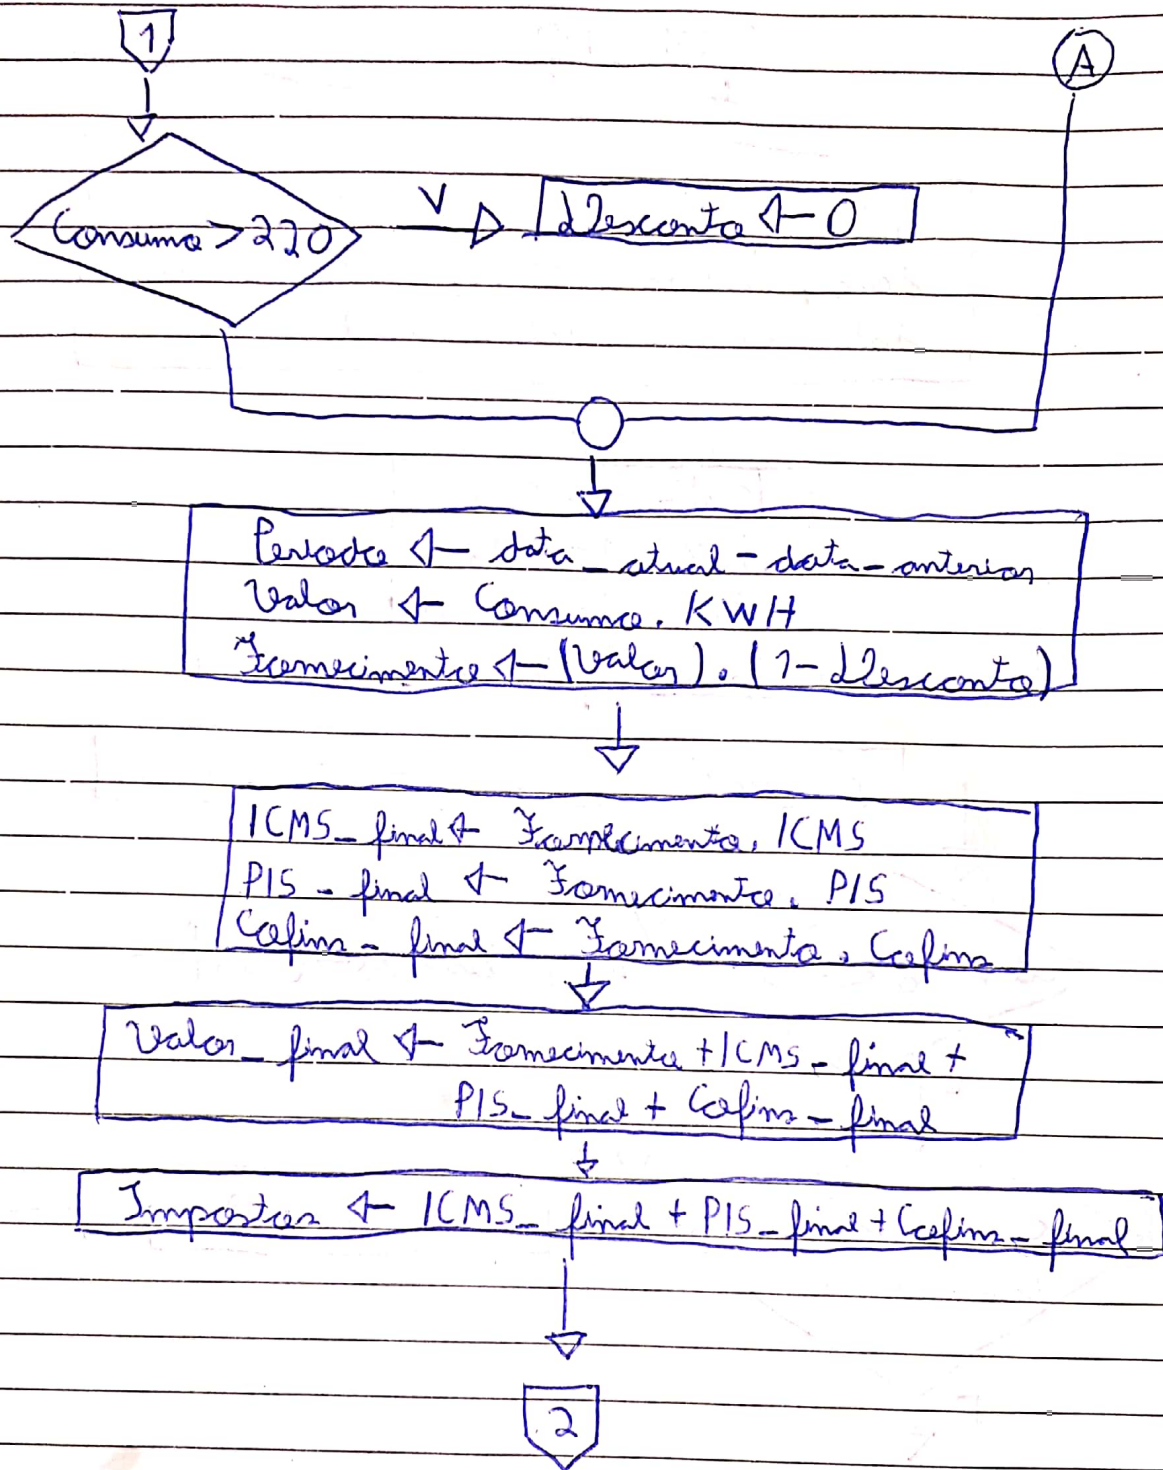 1
A
Consumo > 220
V
Desconto ← 0
Periodo ← data_atual - data_anterior
Valor ← Consumo . KWH
Fornecimento ← (Valor) . (1 - Desconto)
ICMS_final ← Fornecimento . ICMS
PIS_final ← Fornecimento . PIS
Cofins_final ← Fornecimento . Cofins
Valor_final ← Fornecimento + ICMS_final +
PIS_final + Cofins_final
Impostos ← ICMS_final + PIS_final + Cofins_final
2